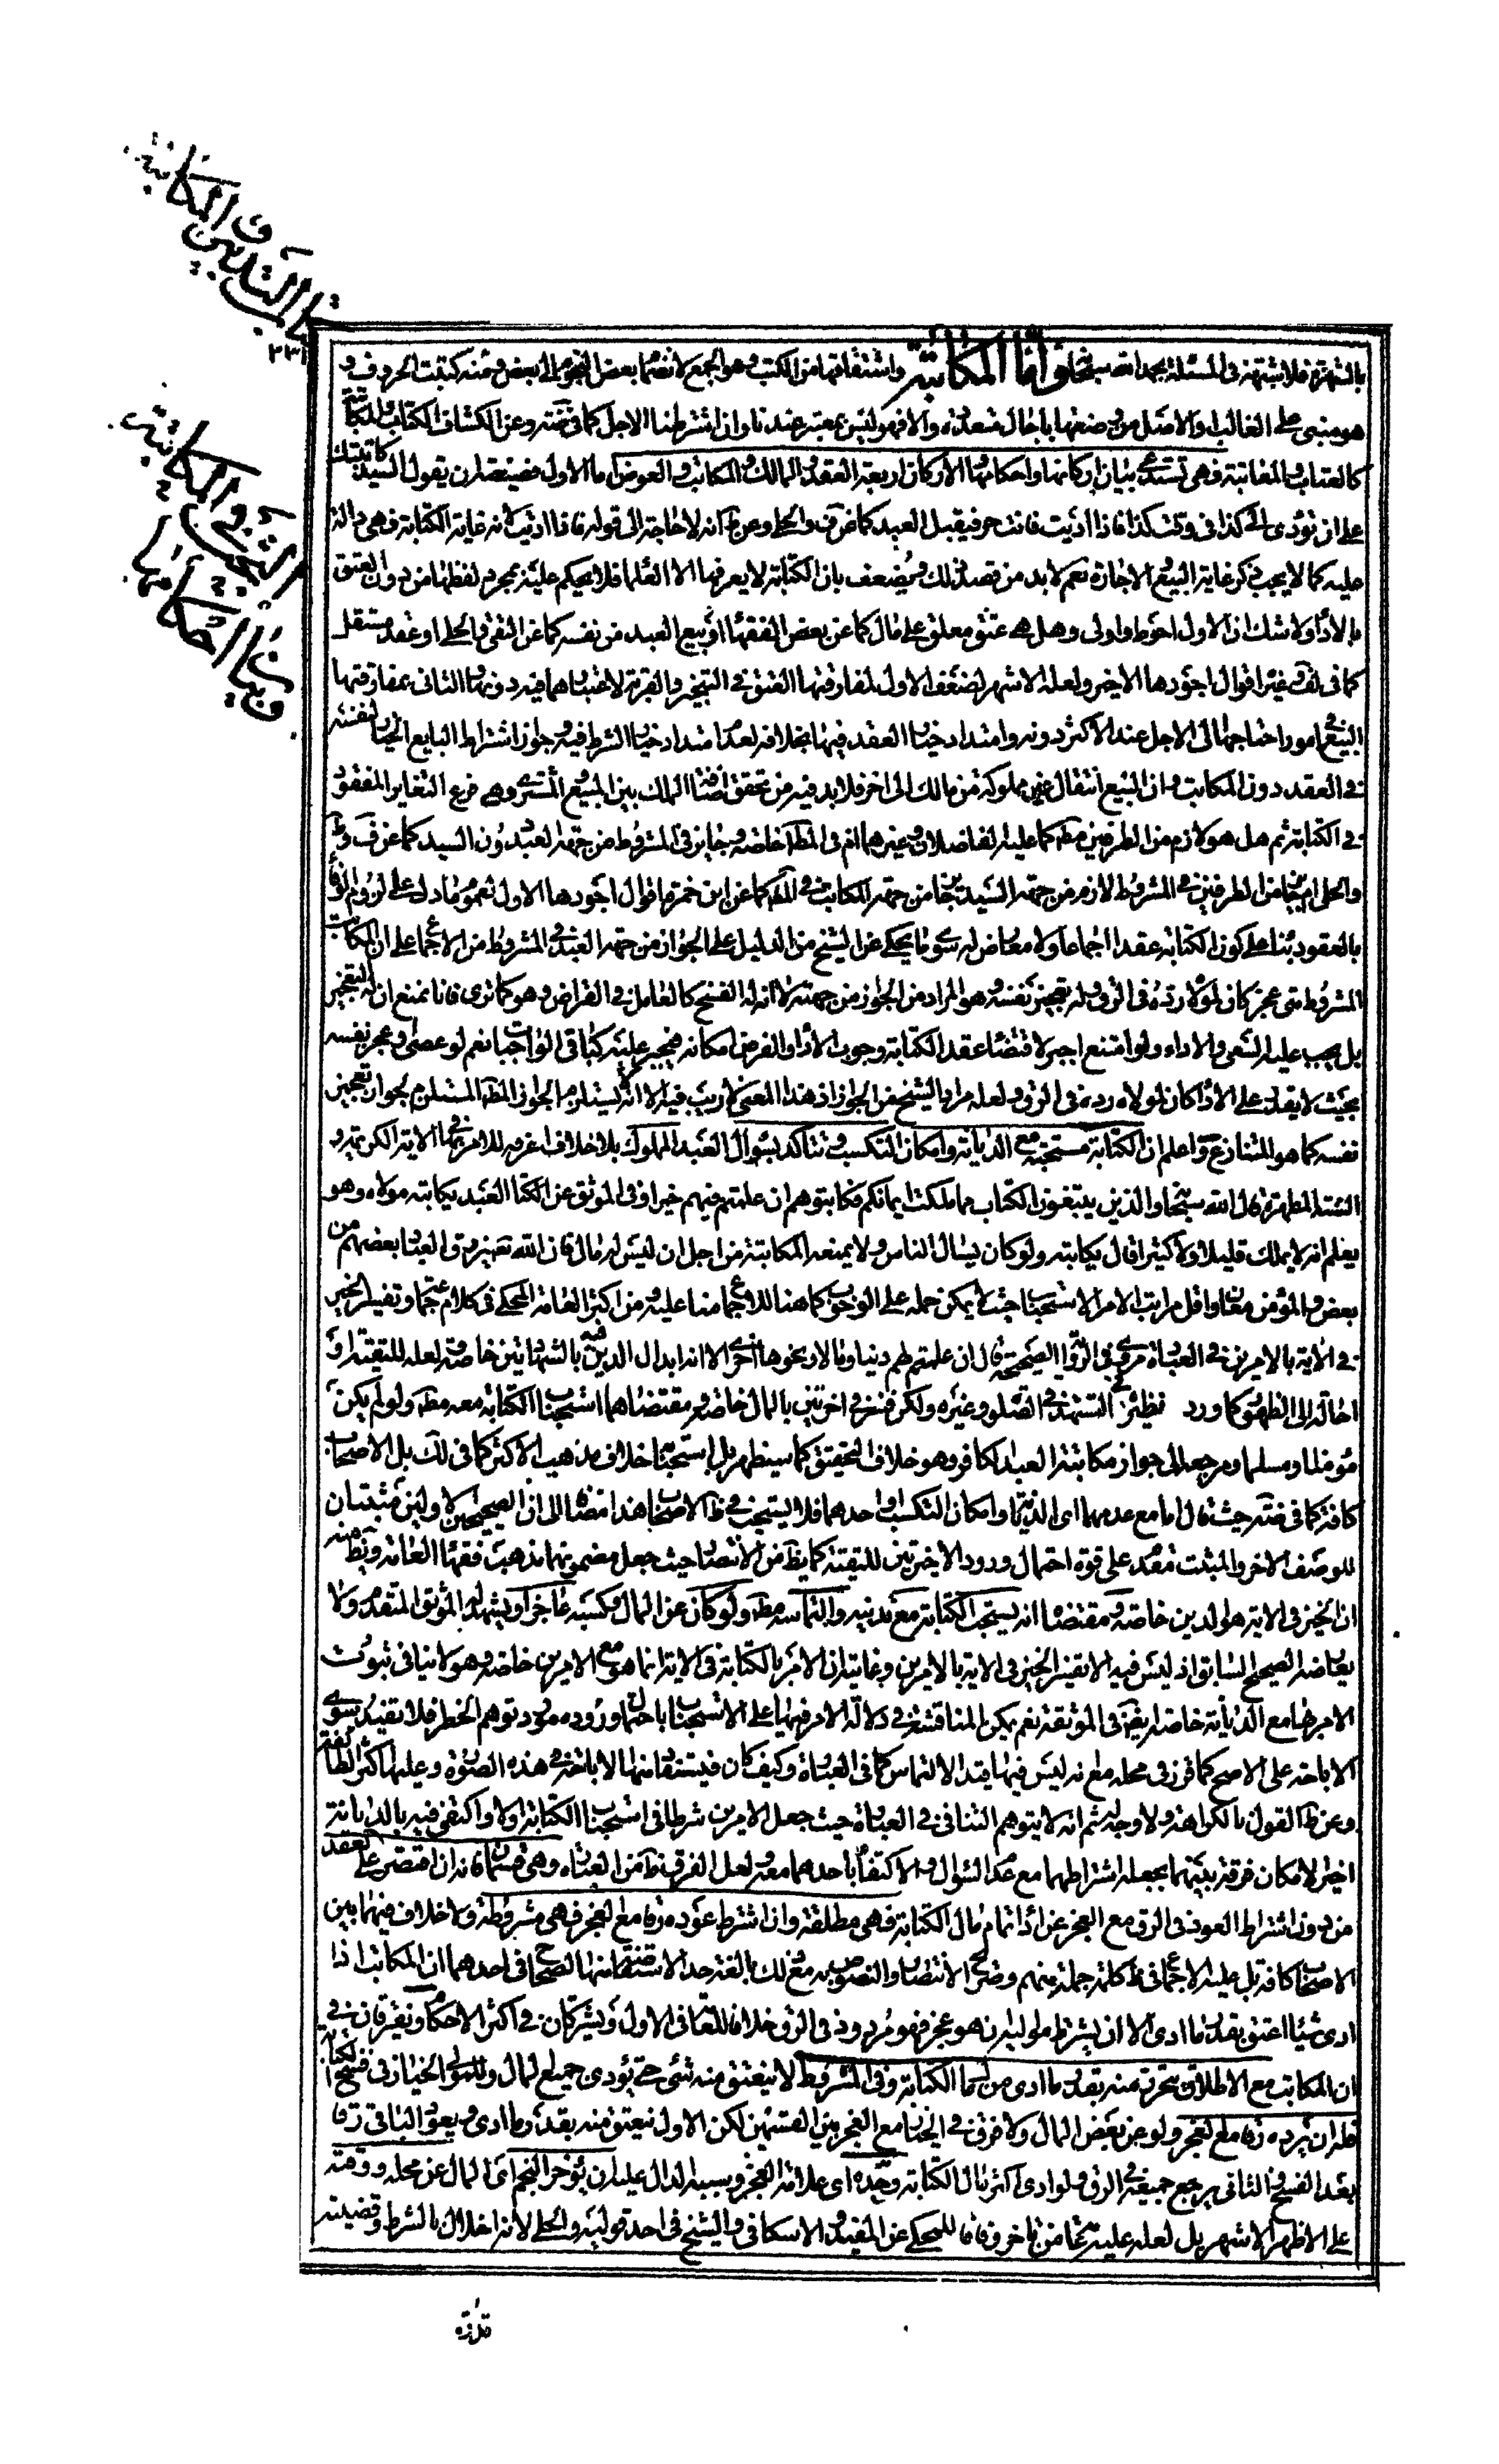 كتاب التدبير والمكاتبة
٢٣١
في المكاتبة
بالشهرة فلا شبهة في المسئلة بحمد الله سبحانه وأما المكاتبة واشتقاقها من الكتب وهو الجمع لانضمام بعض النجوم الى بعض ومنه كتبت الحروف و
هو مبني على الغالب او الاصل من وضعها بآجال متعددة والا فهو ليس بمعتبر عندنا وان اشترطنا الاجل كما في ضه وعن الكشاف الكتاب والمكاتبة
كالعتاب والمعاتبة وهي تستدعي بيان اركانها واحكامها والاركان اربعة العقد والمالك والمكاتب والعوض اما الاول فصيغته ان يقول السيد كاتبتك
على ان تؤدي الي كذا في وقت كذا فاذا اديت فانت حر فيقبل العبد كما عن ف والحلي وعن ط انه لا حاجة الى قوله فاذا اديت لانه غاية الكتابة فهي دالة
عليه كما لا يجب ذكر غاية البيع والاجارة نعم لا بد من قصد ذلك ويضعف بان الكتابة لا يعرفها الا العلماء فلا يحكم عليه بمجرد لفظها من دون العتق
بالاداء ولا شك ان الاول احوط واولى وهل هي عتق معلق على مال كما عن بعض الفقهاء او بيع العبد من نفسه كما عن التقي والحلي او عقد مستقل
كما في لف وغيره اقوال اجودها الاخير ولعله الاشهر لضعف الاول لمفارقتها العتق في التنجيز والقربة لاعتبارهما فيه دونها والثاني بمفارقتها
البيع في امور احتياجها الى الاجل عند الاكثر دونه وامتداد خيار العقد فيها بخلافه لعدم امتداد خيار الشرط فيه وجواز اشتراط البايع الخيار لنفسه
في العقد دون المكاتب وان البيع انتقال عين مملوكة من مالك الى اخر فلا بد فيه من تحقق اضافة الملك بين المبيع والمشتري وهي فرع التغاير المفقود
في الكتابة ثم هل هو لازم من الطرفين مطه كما عليه الفاضلان وغيرهما ام في المطلقة خاصة وجايز في المشروط من جهة العبد دون السيد كما عن ف وط
والحلي ام جايز من الطرفين في المشروط لازم من جهة السيد جايز من جهة المكاتب في المطلقة كما عن ابن حمزة اقوال اجودها الاول لعموم ما دل على لزوم الوفاء
بالعقود بناء على كون الكتابة عقدا اجماعا ولا معارض له سوى ما يحكى عن الشيخ من الدليل على الجواز من جهة العبد في المشروط من الاجماع على ان المكاتب
المشروط متى عجز كان لمولاه رده في الرق وله تعجيز نفسه وهو المراد من الجواز من جهته لا ان له الفسخ كالعامل في القراض وهو كما ترى فانا نمنع ان له التعجيز
بل يجب عليه السعي والاداء ولو امتنع اجبر لاقتضاء عقد الكتابة وجوب الاداء والفرض امكانه فيجبر عليه كباقي الواجبات نعم لو عصى وعجز نفسه
بحيث لا يقدر على الاداء كان لمولاه رده في الرق ولعله مراد الشيخ من الجواز اذ هذا المعنى لا ريب فيه الا انه لا يستلزم الجواز المطلق المستلزم لجواز تعجيز
نفسه كما هو المتنازع واعلم ان الكتابة مستحبة مع الديانة وامكان التكسب وتتأكد بسؤال العبد المملوك بلا خلاف اعرفه للامر بها في الاية الكريمة و
السنة المطهرة قال الله سبحانه والذين يبتغون الكتاب مما ملكت ايمانكم فكاتبوهم ان علمتم فيهم خيرا وفي الموثق عن العبد يكاتبه مولاه وهو
يعلم انه لا يملك قليلا ولا كثيرا قال يكاتبه ولو كان يسأل الناس ولا يمنعه المكاتبة من اجل ان ليس له مال فان الله تعالى يرزق العباد بعضهم من
بعض والمؤمن معان واقل مراتب الامر الاستحباب حيث لا يمكن حمله على الوجوب كما هنا للاجماع منا عليه ومن اكثر العامة المحكي في كلام جماعة وتفسير الخير
في الاية بالامرين في العبارة مروي في الرواية الصحيحة قال ان علمتم لهم دينا ومالا ونحوها اخرى الا انه ابدال الدين فيه بالشهادتين خاصة ولعله للتقية او
احالة الى الظهور كما ورد نظيره في التشهد في الصلوة وغيره ولكن فسر في اخرتين بالمال خاصة ومقتضاهما استحباب الكتابة معه مطه ولو لم يكن
مؤمنا ومسلما ومرجعه الى جواز مكاتبة العبد الكافر وهو خلاف التحقيق كما سيظهر بل استحبابها خلاف مذهب الاكثر كما في لك بل الاصحاب
كافة كما في ضه حيث قال اما مع عدمهما اي الديانة وامكان التكسب او احدهما فلا يستحب في ظاهر الاصحاب هذا مضافا الى ان الصحيحين الاولين مثبتان
للوصف الاخر والمثبت مقدم على قوة احتمال ورود الاخيرتين للتقية كما يظهر من الانتصار حيث جعل مضمونهما مذهب فقهاء العامة ويظهر منه
ان الخير في الاية هو الدين خاصة ومقتضاه انه يستحب الكتابة مع تدينه والتماسه مطه ولو كان عن المال وكسبه عاجزا ويشهد له الموثق المتقدم ولا
يعارضه الصحيح السابق اذ ليس فيه الا تفسير الخير في الاية بالامرين وغايته ان الامر بالكتابة في الاية انما هو مع الامرين خاصة وهو لا ينافي ثبوت
الامر بها مع الديانة خاصة ايضا في الموثقة نعم يمكن المناقشة في دلالة الامر فيها على الاستحباب باحتمال وروده مورد توهم الحظر فلا يفيد سوى
الاباحة على الاصح كما قرر في محله مع انه ليس فيها قيد الالتماس كما في العبارة وكيف كان فيستفاد منها الاباحة في هذه الصورة وعليها اكثر الطائفة
وعن ط القول بالكراهة ولا وجه له ثم انه لا يتوهم التنافي في العبارة حيث جعل الامرين شرطا في استحباب الكتابة اولا واكتفى فيه بالديانة
اخيرا لامكان فرقه بينهما بجعله اشتراطهما مع عدم السؤال والاكتفاء باحدهما معه ولعل الفرق ظ من العبارة وهي قسمان فانه ان اقتصر على العقد
من دون اشتراط العود في الرق مع العجز عن اداء تمام مال الكتابة فهي مطلقة وان اشترط عوده رقا مع العجز فهي مشروطة ولا خلاف فيهما بين
الاصحاب كافة بل عليه الاجماع في ظ كلمة جملة منهم وصريح الانتصار والنصوص به مع ذلك بالغة حد الاستفاضة منها الصحاح في احدها ان المكاتب اذا
ادى شيئا اعتق بقدر ما ادى الا ان يشترط مواليه ان هو عجز فهو مردود في الرق خلافا للعامة في الاول ويشتركان في اكثر الاحكام ويفترقان في
ان المكاتب مع الاطلاق يتحرر منه بقدر ما ادى من مال الكتابة وفي المشروط لا ينعتق منه شيء حتى يؤدي جميع المال وللمولى الخيار في فسخ الكتابة
فله ان يرده رقا مع العجز ولو عن بعض المال ولا فرق في الخيار مع العجز بين القسمين لكن الاول ينعتق منه بقدر ما ادى ويعود الباقي رقا
بعد الفسخ والثاني يرجع جميعه في الرق ولو ادى اكثر مال الكتابة وحده اي علامة العجز وسببه الدال عليه ان يؤخر النجم اي المال عن محله ووقته
على الاظهر الاشهر بل لعله عليه عامة من تاخر وفاقا للمحكي عن المفيد والاسكافي والشيخ في احد قوليه والحلي لانه اخلال بالشرط وقضيته